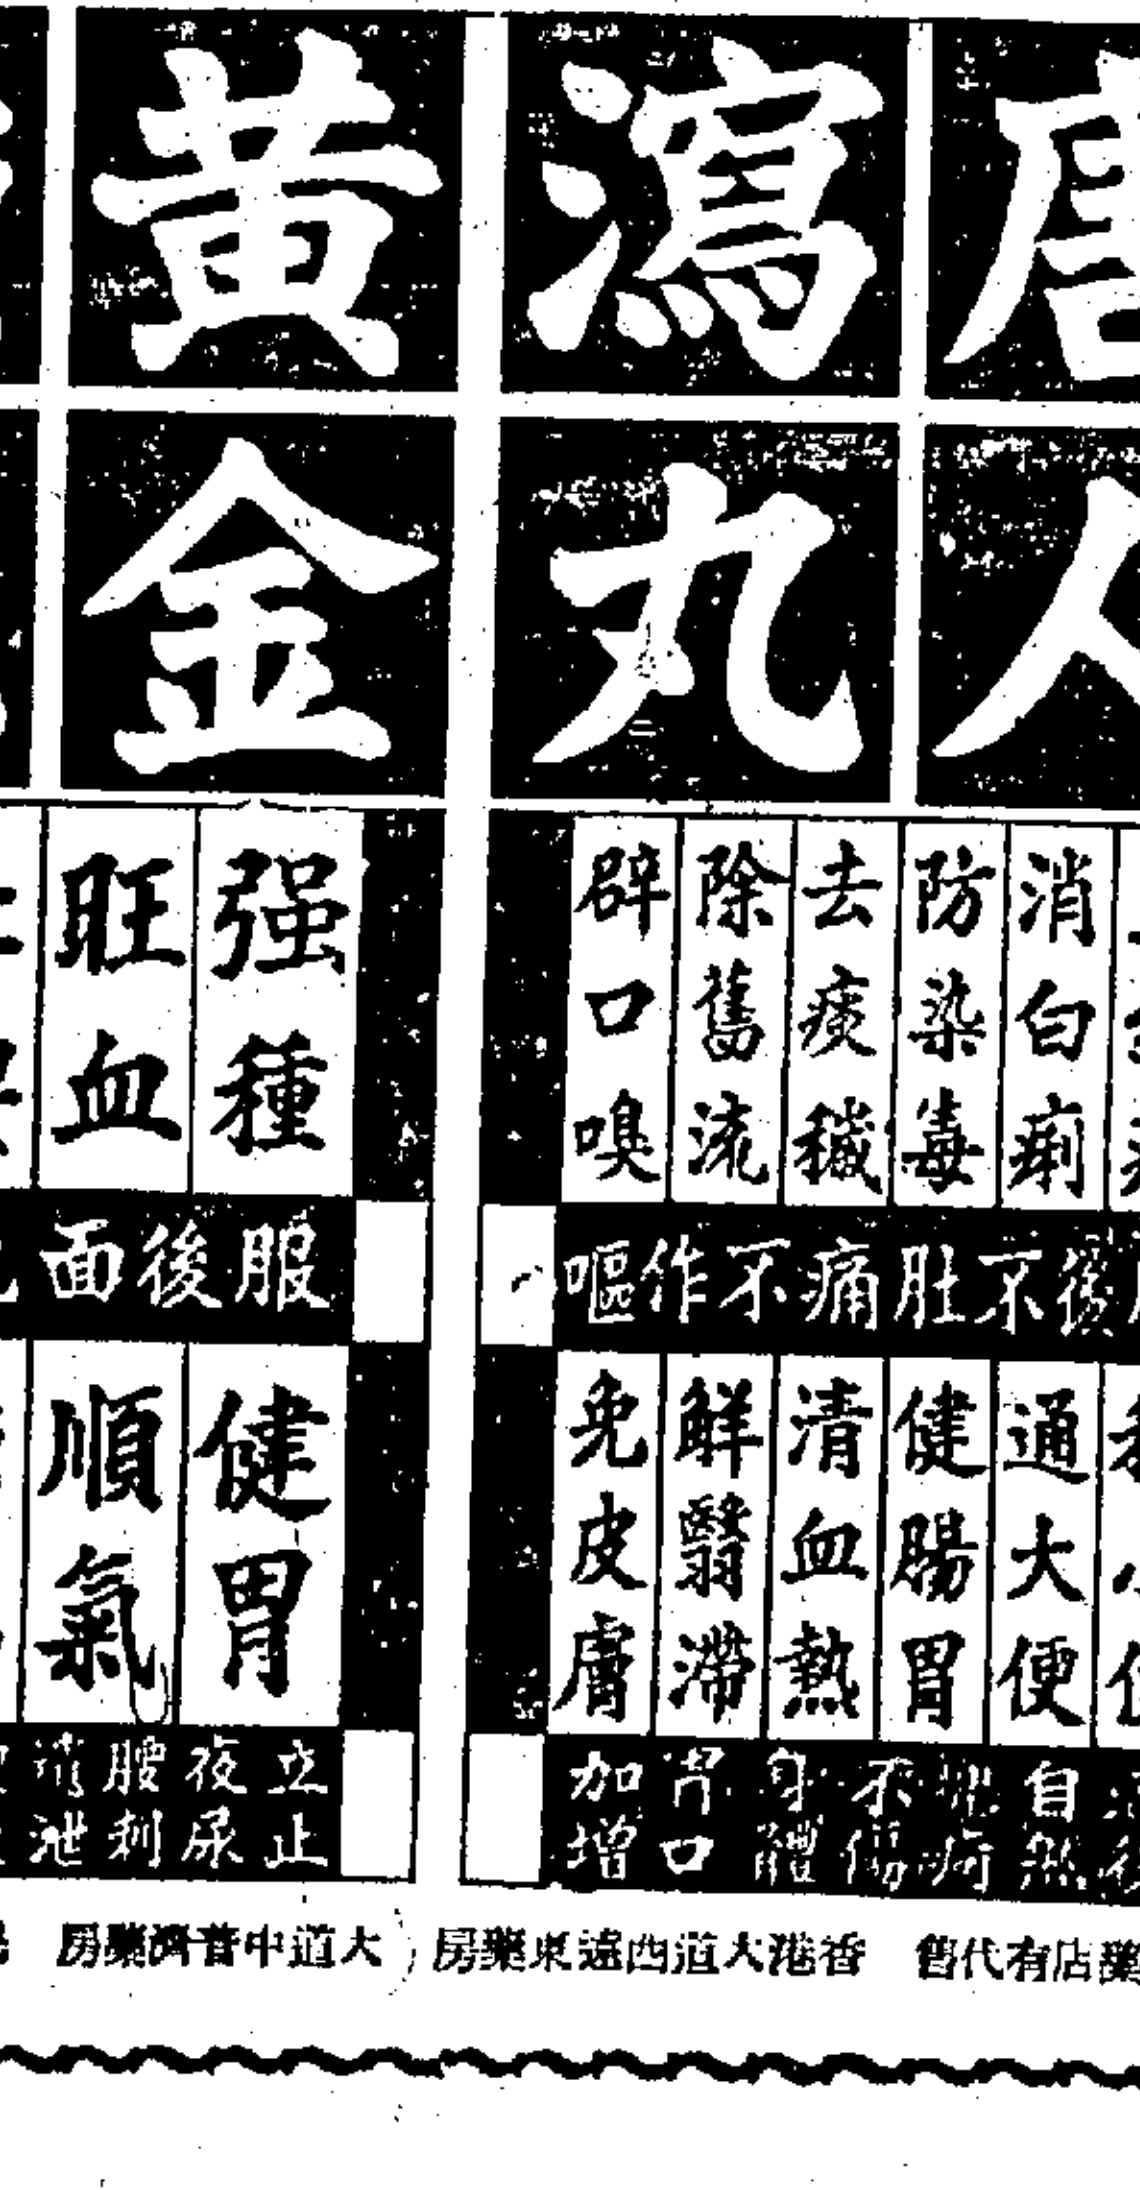 唐人
瀉丸
消白痢
防染毒
去痰穢
除舊流
辟口嗅
後不肚痛不作嘔
通大便
健腸胃
清血熱
鮮翳滯
免皮膚
自然
不傷
身體
胃口
加增
黃金
强種
旺血
服後面
健胃
順氣
立止
夜尿
藥店有代售
香港大道西遠東藥房
大道中普濟藥房